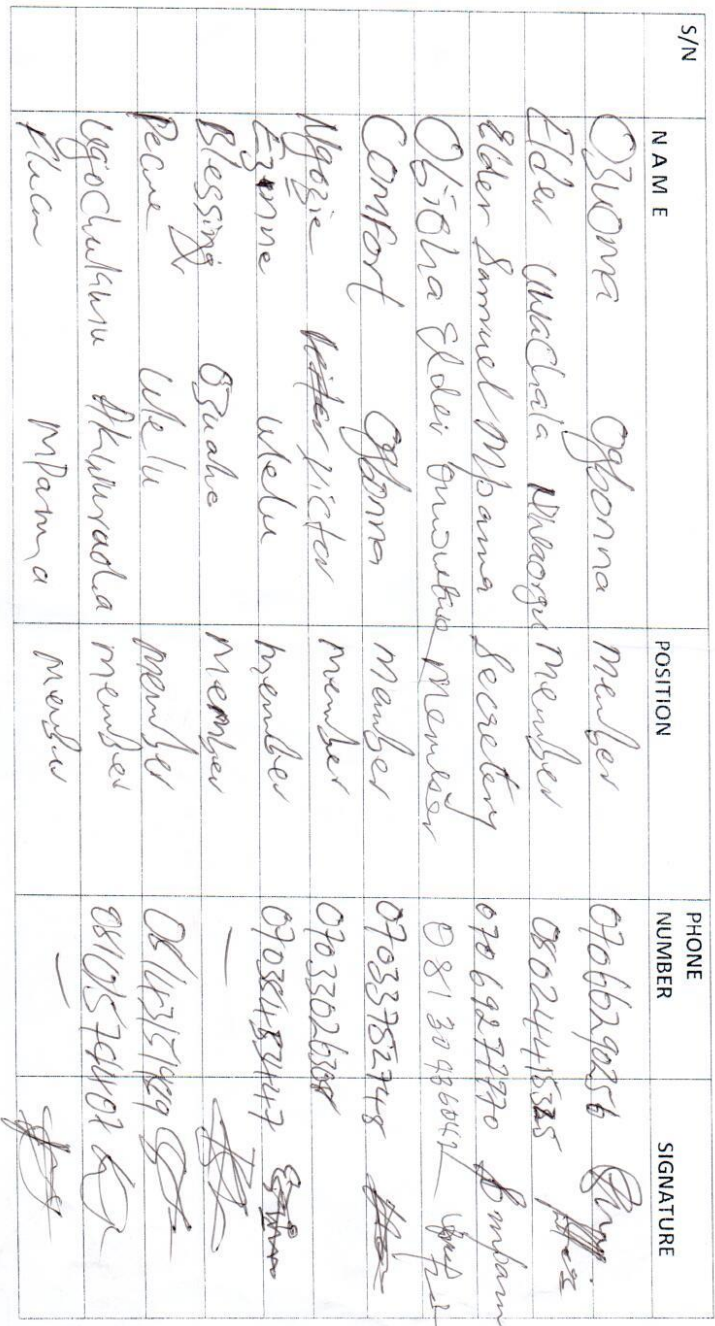 S/N NAME POSITION PHONE NUMBER SIGNATURE
Ozuoma Ogbonna member 07066290256
Elder Nwachata member 08024415325
Elder Samuel Mpama Secretary 07069277770
Obioha Elder member 08130986042
Comfort Ogbonna member 07033752748
Ngozie Victor member 07033026308
Ezinne Ulelu member 07038453147
Blessing Ozuahe member –
Peace Ulelu member 08143151989
Ugochukwu Akwurada member
Mpama member –